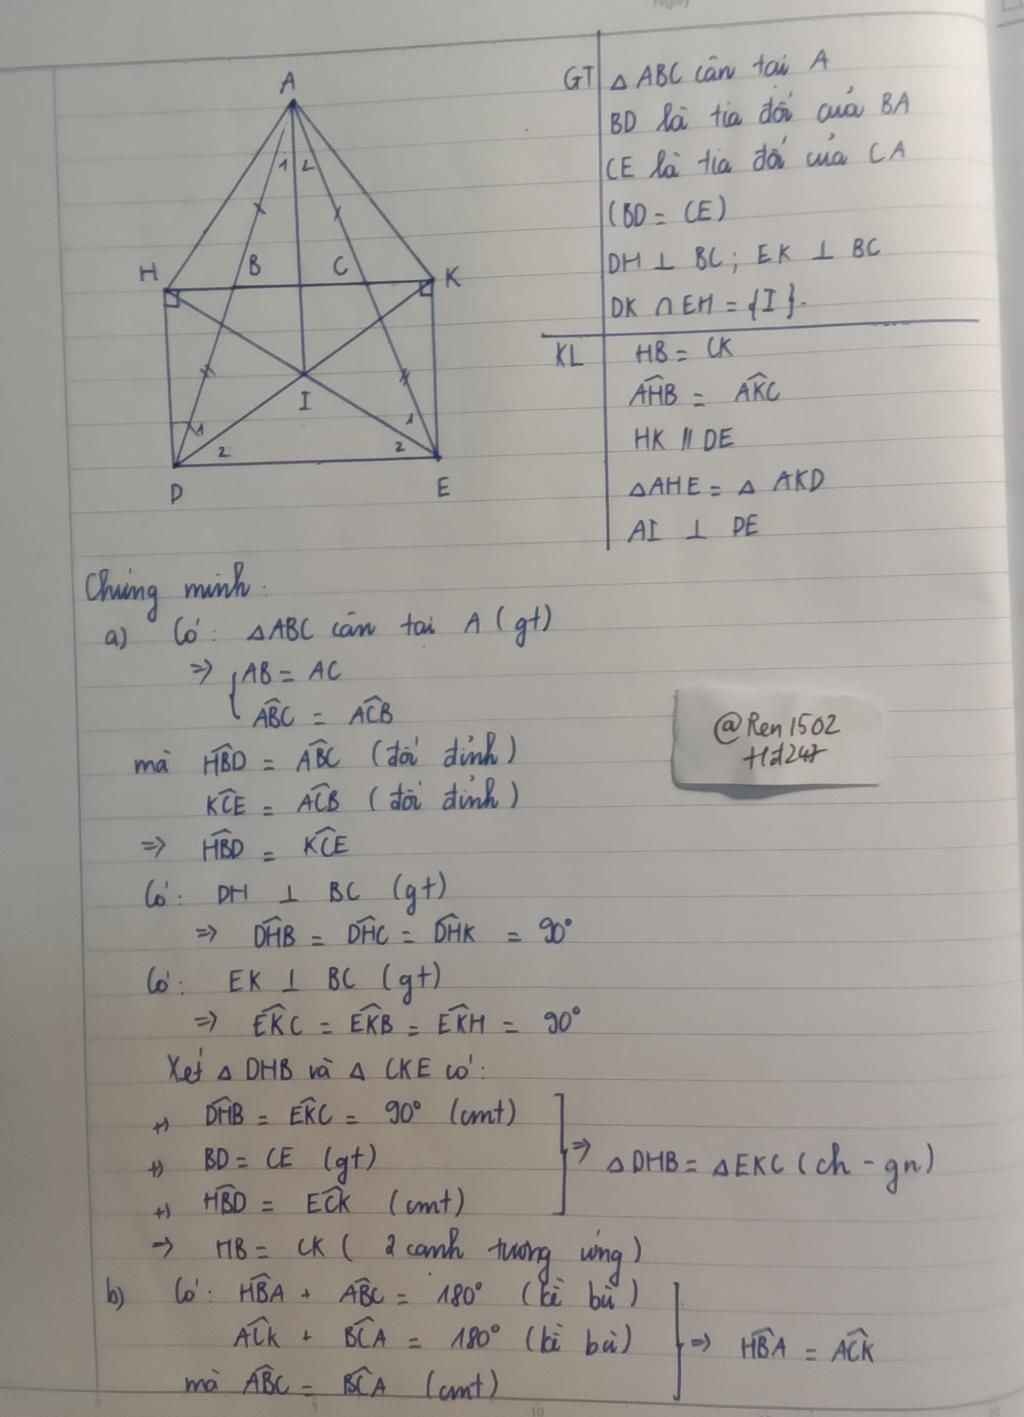 A
1 2
H
B
C
K
I
1
2
1
2
D
E
GT
Δ ABC cân tại A
BD là tia đối của BA
CE là tia đối của CA
(BD = CE)
DH ⊥ BC; EK ⊥ BC
DK ∩ EH = {I}.
KL
HB = CK
AĤB = AK̂C
HK // DE
ΔAHE = Δ AKD
AI ⊥ DE
Chứng minh:
a) Có: ΔABC cân tại A (gt)
=> { AB = AC
AB̂C = AĈB
mà HB̂D = AB̂C (đối đỉnh)
KĈE = AĈB (đối đỉnh)
=> HB̂D = KĈE
Có: DH ⊥ BC (gt)
=> DĤB = DĤC = DĤK = 90°
Có: EK ⊥ BC (gt)
=> EK̂C = EK̂B = EK̂H = 90°
Xét Δ DHB và Δ CKE có:
+) DĤB = EK̂C = 90° (cmt)
+) BD = CE (gt)
+) HB̂D = EĈK (cmt)
=> ΔDHB = ΔEKC (ch - gn)
-> HB = CK (2 cạnh tương ứng)
b) Có: HB̂A + AB̂C = 180° (kề bù)
AĈK + BĈA = 180° (kề bù)
mà AB̂C = BĈA (cmt)
=> HB̂A = AĈK
@Ren1502
Hd247